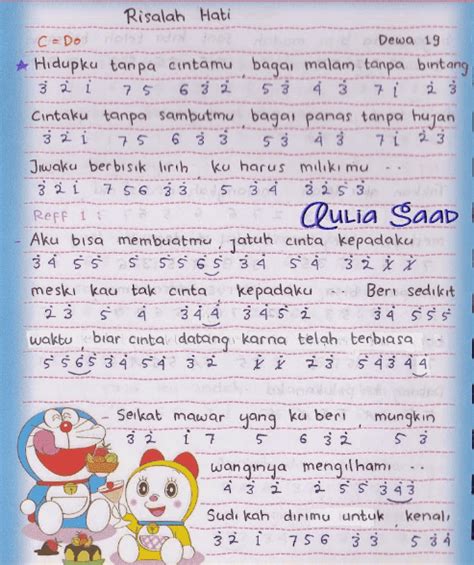 Risalah Hati
C = Do Dewa 19
★ Hidupku tanpa cintamu, bagai malam tanpa bintang
3 2 1 7 5 6 3 2 5 3 4 3 7 1 2 3
Cintaku tanpa sambutmu, bagai panas tanpa hujan
3 2 1 7 5 6 3 3 5 3 4 3 7 1 2 3
Jiwaku berbisik lirih, ku harus milikimu - -
3 2 1 7 5 6 3 3 5 3 4 3 2 5 3
Reff 1 :
Qulia Saad
- Aku bisa membuatmu, jatuh cinta kepadaku
3 4 5 5 5 5 5 6 5 3 4 5 4 3 2
meski kau tak cinta, kepadaku - - Beri sedikit
2 3 5 4 3 4 4 3 4 5 2 3 4 5 5 5
waktu, biar cinta datang karna telah terbiasa - -
5 5 6 5 3 4 5 4 3 2 2 3 5 4 3 4 4
- Seikat mawar yang ku beri, mungkin
3 2 1 7 5 6 3 2 5 3
wanginya mengilhami - -
4 3 2 2 5 5 3 4 3
Sudikah dirimu untuk, kenali
3 2 1 7 5 6 3 3 5 3 4